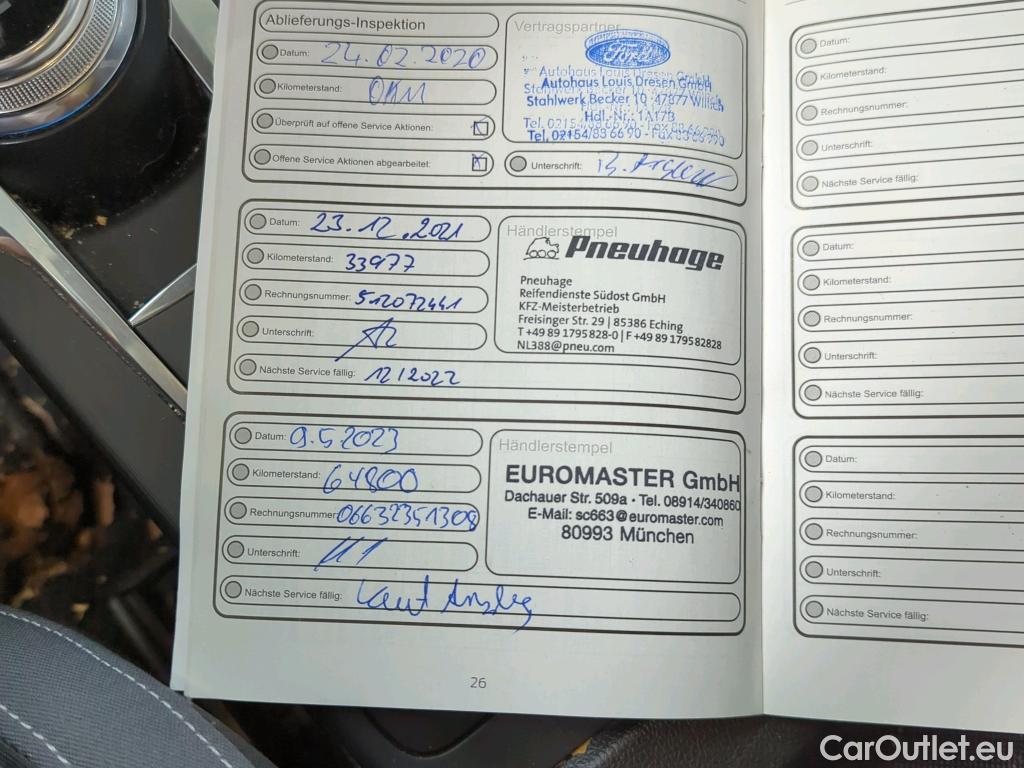 Ablieferungs-Inspektion
Datum: 24.02.2020
Kilometerstand: 0KM
Überprüft auf offene Service Aktionen:
Offene Service Aktionen abgearbeitet:
Vertragspartner
Ford
Autohaus Louis Dresen GmbH
Stahlwerk Becker 10 · 47877 Willich
Hdl.-Nr.: 1A173
Tel. 02154/83 66 90 - Fax 83 66 990
Unterschrift:
Datum: 23.12.2021
Kilometerstand: 33977
Rechnungsnummer: 512072441
Unterschrift:
Nächste Service fällig: 12/2022
Händlerstempel
Pneuhage
Pneuhage
Reifendienste Südost GmbH
KFZ-Meisterbetrieb
Freisinger Str. 29 | 85386 Eching
T +49 89 1795 828-0 | F +49 89 179582828
NL388@pneu.com
Datum: 9.5.2023
Kilometerstand: 64800
Rechnungsnummer: 06632351308
Unterschrift:
Nächste Service fällig: Laut Anzeige
Händlerstempel
EUROMASTER GmbH
Dachauer Str. 509a · Tel. 08914/340860
E-Mail: sc663@euromaster.com
80993 München
26
Datum:
Kilometerstand:
Rechnungsnummer:
Unterschrift:
Nächste Service fällig:
Datum:
Kilometerstand:
Rechnungsnummer:
Unterschrift:
Nächste Service fällig:
Datum:
Kilometerstand:
Rechnungsnummer:
Unterschrift:
Nächste Service fällig:
CarOutlet.eu